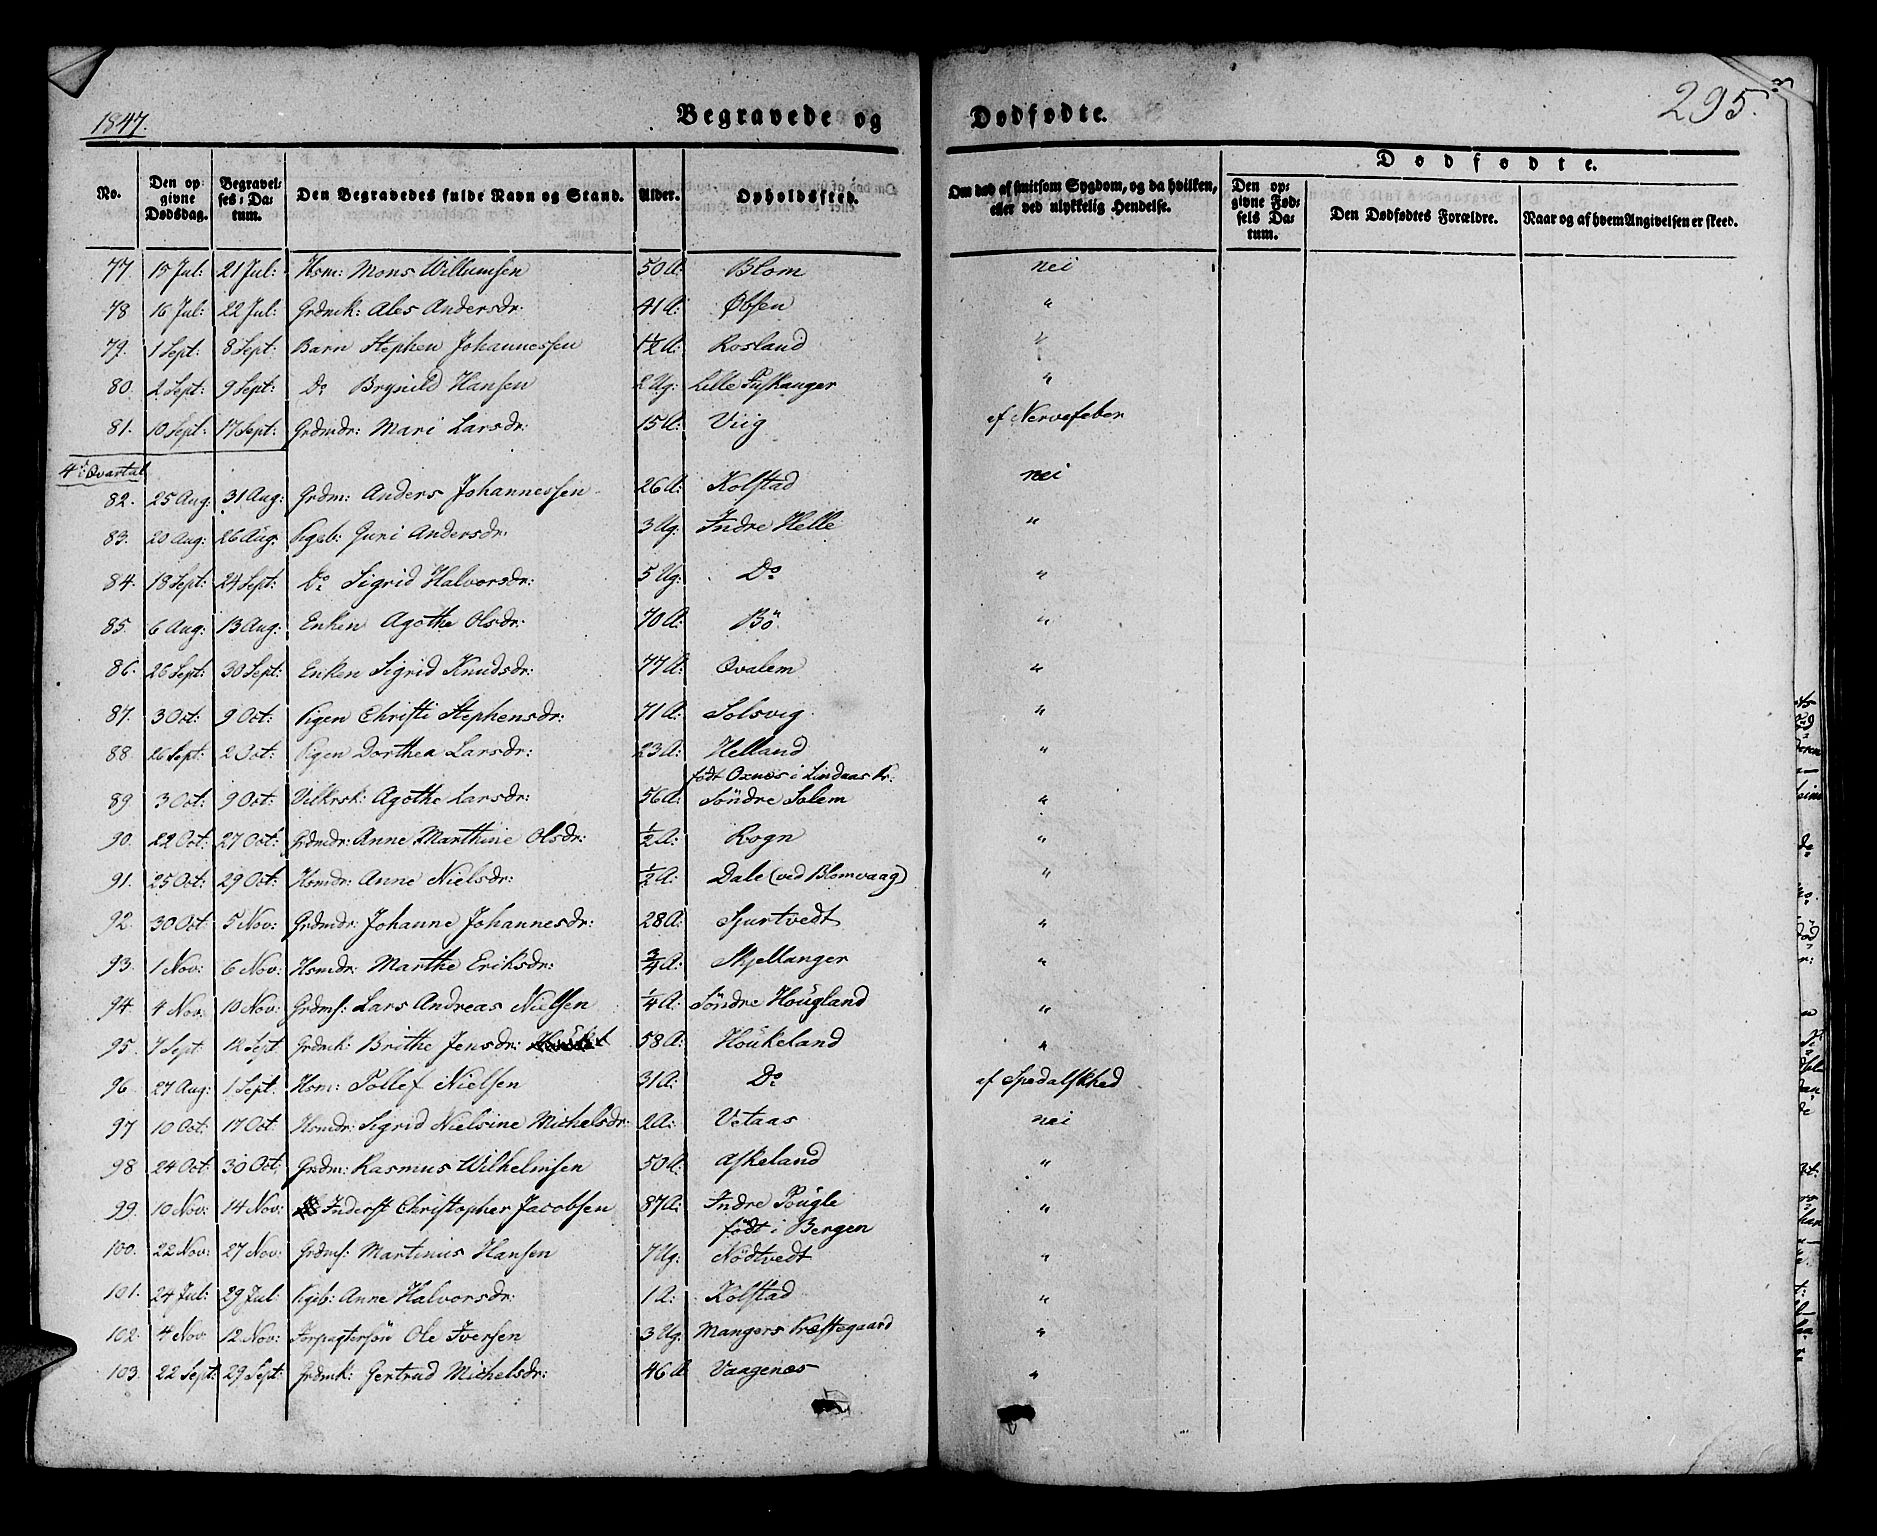 1847.
Begravede og Dødfødte.
295.
No.
Den opgivne Dødsdag.
Begravelses-Datum.
Den Begravedes fulde Navn og Stand.
Alder.
Opholdssted.
Om død af smitsom Sygdom, og da hvilken, eller ved ulykkelig Hendelse.
Dødfødte.
Den opgivne Fødsels Datum.
Den Dødfødtes Forældre.
Naar og af hvem Angivelsen er skeed.
77. 15 Jul: 21 Jul: Hsm: Mons Willumsen 50 A: Blom nei
78 16 Jul: 22 Jul: Grdmk: Ales Andersdr: 41 A: Øbsen "
79. 1 Sept: 8 Sept: Barn Stephen Johannessen 1½ A: Rosland "
80. 2 Sept: 9 Sept: Do Brynild Hansen 2 Ug: Lille Fuskanger "
81. 10 Sept: 17 Sept: Grdmdr: Mari Larsdr: 15 A: Viig af Nervefeber
4de Qvartal
82. 25 Aug: 31 Aug: Grdm: Anders Johannessen 26 A: Kolstad nei
83. 20 Aug: 26 Aug: Pgeb: Guri Andersdr: 3 Ug. Indre Helle "
84. 18 Sept: 24 Sept: Do Sigrid Halvorsdr: 5 Ug: Do "
85. 6 Aug: 13 Aug: Enken Agothe Olsdr: 70 A: Bö "
86. 26 Sept: 30 Sept: Enken Sigrid Knudsdr: 77 A: Qvalem "
87. 3 Oct: 9 Oct: Pigen Christi Stephensdr: 71 A: Solsvig "
88. 26 Sept: 2 Oct: Pigen Dorthea Larsdr: 23 A: Helland "
født Oxnæs i Lindaas Pr:
89 3 Oct: 9 Oct: Vilkrsk: Agothe Larsdr: 56 A: Söndre Solem "
90. 22 Oct: 27 Oct: Grdmdr: Anne Marthine Olsdr: ½ A: Rogn "
91. 25 Oct: 29 Oct: Hsmdr: Anne Nielsdr: ½ A: Dale (ved Blomvaag) "
92. 30 Oct: 5 Nov: Grdmdr: Johanne Johannesdr: 28 A: Sjurtvedt "
93. 1 Nov: 6 Nov: Hsmdr: Marthe Eriksdr: ¾ A: Skjellanger "
94. 4 Nov: 10 Nov: Grdms: Lars Andreas Nielsen ¼ A: Söndre Hougland "
95. 7 Sept: 12 Sept: Grdmk: Brithe Jensdr: 58 A: Houkeland "
96. 27 Aug: 1 Sept: Hsm: Tollef Nielsen 31 A: Do af Spedalskhed
97 10 Oct: 17 Oct: Hsmdr: Sigrid Nielsine Michelsdr: 2 A: Vetaas nei
98 24 Oct: 30 Oct: Grdm: Rasmus Wilhelmsen 50 A: Askeland "
99. 10 Nov: 14 Nov: Inderst Christopher Jacobsen 87 A: Indre Pougle "
født i Bergen
100. 22 Nov: 27 Nov: Grdms: Martinus Hansen 7 Ug: Nödtvedt "
101. 24 Jul: 29 Jul: Pgeb: Anne Halvorsdr: 1 A: Kolstad "
102. 4 Nov: 12 Nov: Forpagtersön Ole Iversen 3 Ug: Mangers Præstegaard "
103. 22 Sept: 29 Sept: Grdmk: Gertrud Michelsdr: 46 A Vaagenæs "